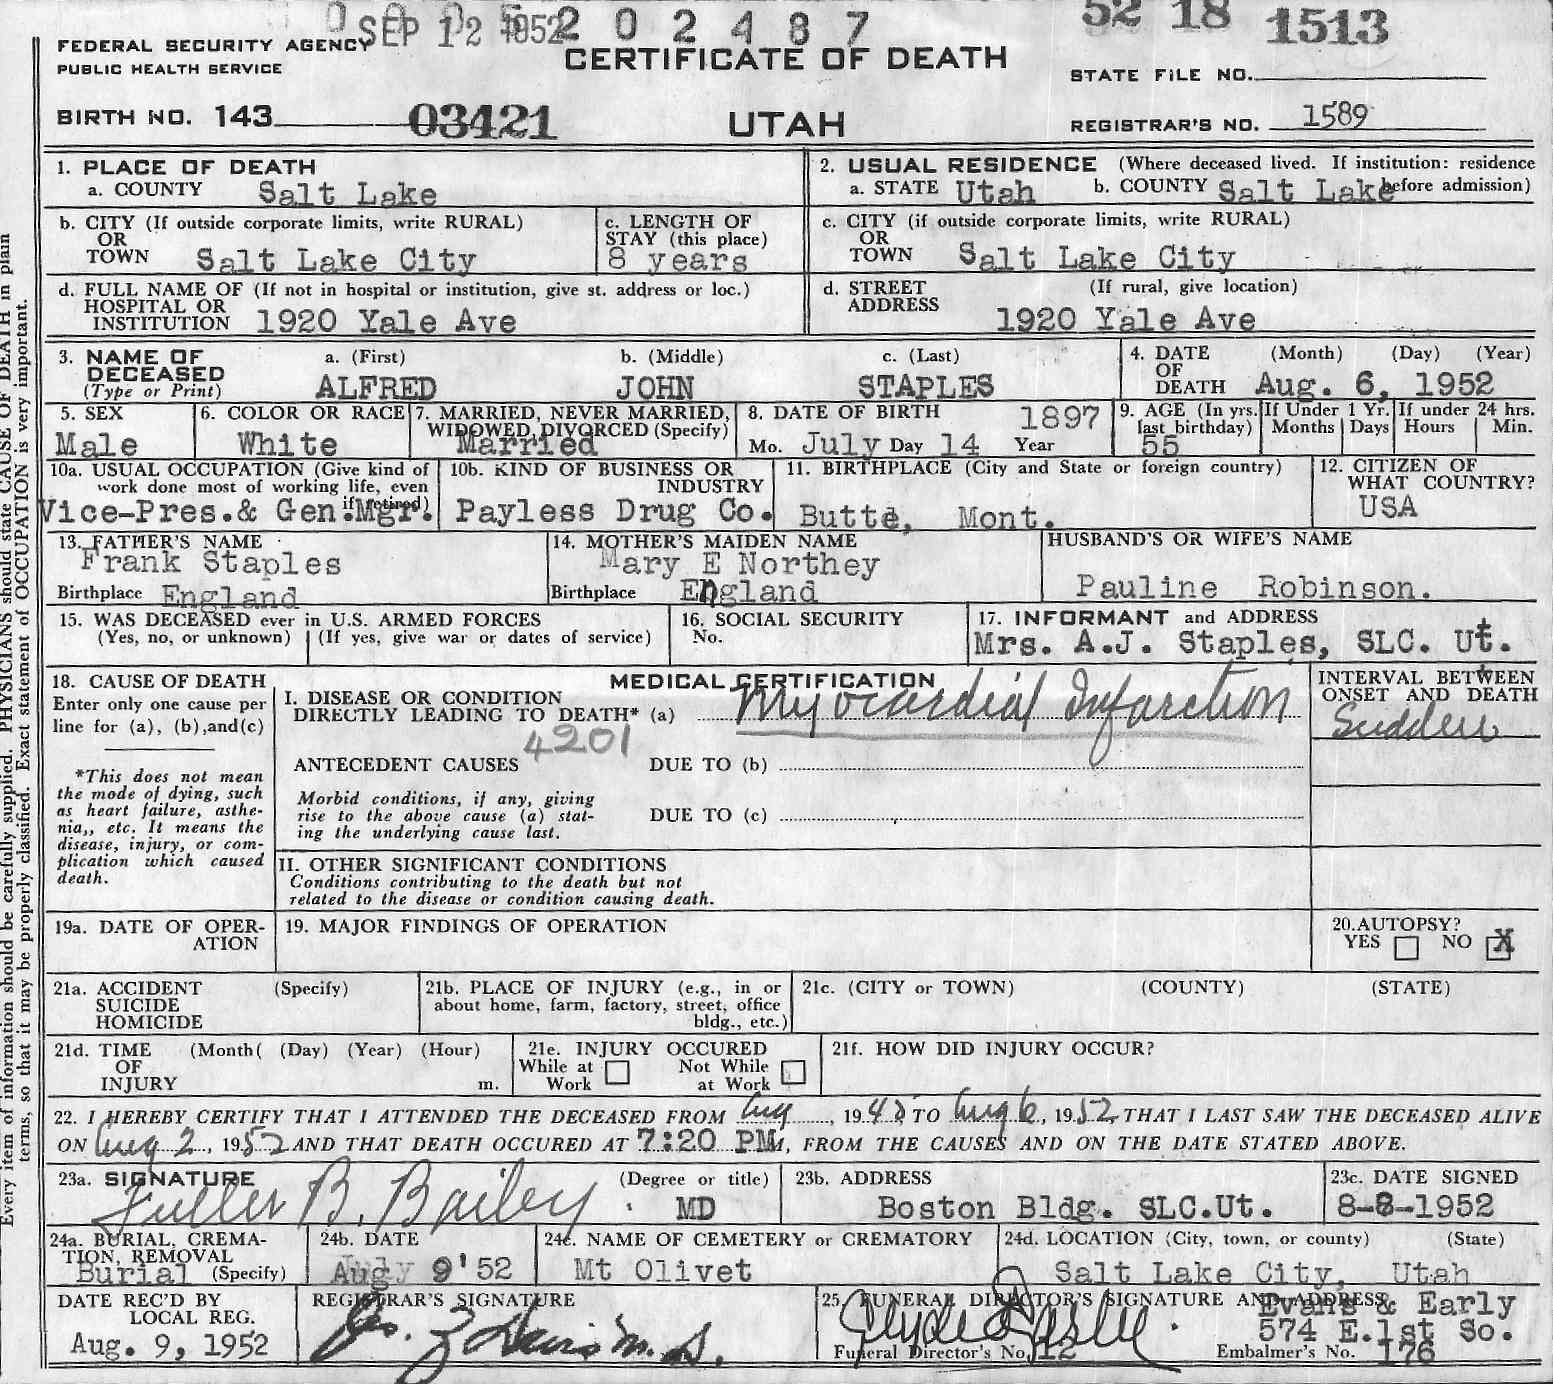 SEP 12 1952 202487 52 18 1513
FEDERAL SECURITY AGENCY
PUBLIC HEALTH SERVICE
CERTIFICATE OF DEATH
STATE FILE NO.
BIRTH NO. 143 03421 UTAH
REGISTRAR'S NO. 1589
1. PLACE OF DEATH
a. COUNTY Salt Lake
2. USUAL RESIDENCE (Where deceased lived. If institution: residence before admission)
a. STATE Utah b. COUNTY Salt Lake
b. CITY (If outside corporate limits, write RURAL)
OR
TOWN Salt Lake City
c. LENGTH OF
STAY (this place)
8 years
c. CITY (if outside corporate limits, write RURAL)
OR
TOWN Salt Lake City
d. FULL NAME OF (If not in hospital or institution, give st. address or loc.)
HOSPITAL OR
INSTITUTION 1920 Yale Ave
d. STREET (If rural, give location)
ADDRESS
1920 Yale Ave
3. NAME OF a. (First) b. (Middle) c. (Last)
DECEASED
(Type or Print) ALFRED JOHN STAPLES
4. DATE (Month) (Day) (Year)
OF
DEATH Aug. 6, 1952
5. SEX
Male
6. COLOR OR RACE
White
7. MARRIED, NEVER MARRIED,
WIDOWED, DIVORCED (Specify)
Married
8. DATE OF BIRTH 1897
Mo. July Day 14 Year
9. AGE (In yrs. last birthday)
55
If Under 1 Yr.
Months Days
If under 24 hrs.
Hours Min.
10a. USUAL OCCUPATION (Give kind of
work done most of working life, even
if retired)
Vice-Pres.& Gen.Mgr.
10b. KIND OF BUSINESS OR
INDUSTRY
Payless Drug Co.
11. BIRTHPLACE (City and State or foreign country)
Butte, Mont.
12. CITIZEN OF
WHAT COUNTRY?
USA
13. FATHER'S NAME
Frank Staples
Birthplace England
14. MOTHER'S MAIDEN NAME
Mary E Northey
Birthplace England
HUSBAND'S OR WIFE'S NAME
Pauline Robinson.
15. WAS DECEASED ever in U.S. ARMED FORCES
(Yes, no, or unknown) (If yes, give war or dates of service)
16. SOCIAL SECURITY
No.
17. INFORMANT and ADDRESS
Mrs. A.J. Staples, SLC. Ut.
18. CAUSE OF DEATH
Enter only one cause per
line for (a), (b),and(c)
*This does not mean
the mode of dying, such
as heart failure, asthe-
nia,, etc. It means the
disease, injury, or com-
plication which caused
death.
MEDICAL CERTIFICATION
I. DISEASE OR CONDITION
DIRECTLY LEADING TO DEATH* (a) Myocardial Infarction
4201
ANTECEDENT CAUSES DUE TO (b)
Morbid conditions, if any, giving
rise to the above cause (a) stat-
ing the underlying cause last.
DUE TO (c)
II. OTHER SIGNIFICANT CONDITIONS
Conditions contributing to the death but not
related to the disease or condition causing death.
INTERVAL BETWEEN
ONSET AND DEATH
Sudden
19a. DATE OF OPER-
ATION
19. MAJOR FINDINGS OF OPERATION
20. AUTOPSY?
YES NO X
21a. ACCIDENT (Specify)
SUICIDE
HOMICIDE
21b. PLACE OF INJURY (e.g., in or
about home, farm, factory, street, office
bldg., etc.)
21c. (CITY or TOWN) (COUNTY) (STATE)
21d. TIME (Month( (Day) (Year) (Hour)
OF
INJURY m.
21e. INJURY OCCURED
While at Work Not While at Work
21f. HOW DID INJURY OCCUR?
22. I HEREBY CERTIFY THAT I ATTENDED THE DECEASED FROM Aug, 1948 TO Aug 6, 1952 THAT I LAST SAW THE DECEASED ALIVE
ON Aug 2, 1952 AND THAT DEATH OCCURED AT 7:20 PM, FROM THE CAUSES AND ON THE DATE STATED ABOVE.
23a. SIGNATURE (Degree or title)
Fuller B. Bailey. MD
23b. ADDRESS
Boston Bldg. SLC.Ut.
23c. DATE SIGNED
8-8-1952
24a. BURIAL, CREMA-
TION, REMOVAL
Burial (Specify)
24b. DATE
Aug 9'52
24c. NAME OF CEMETERY or CREMATORY
Mt Olivet
24d. LOCATION (City, town, or county) (State)
Salt Lake City, Utah
DATE REC'D BY
LOCAL REG.
Aug. 9, 1952
REGISTRAR'S SIGNATURE
25. FUNERAL DIRECTOR'S SIGNATURE AND ADDRESS
Evans & Early
574 E.1st So.
Funeral Director's No. 12 Embalmer's No. 176
Every item of information should be carefully supplied. PHYSICIANS should state CAUSE OF DEATH in plain
terms, so that it may be properly classified. Exact statement of OCCUPATION is very important.